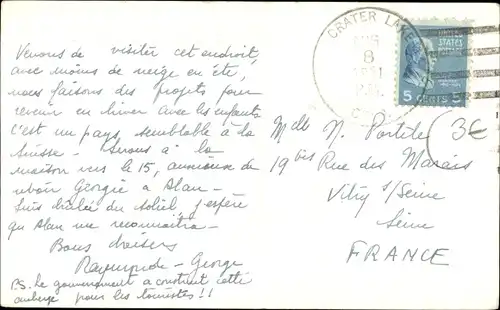 Venons de visiter cet endroit,
avec moins de neige en été,
nous faisons des projets pour
revenir en hiver avec les enfants
C'est un pays semblable à la
Suisse - Serons à la
maison vers le 15, anxieux de
revoir Georgie & Alan -
Suis brûlée du soleil, j'espère
que Alan me reconnaitra -
Bons baisers
Raymonde - George
P.S. le gouvernement a construit cette
auberge pour les touristes !!
CRATER LAKE
AUG
8
UNITED
STATES
POSTAGE
5 CENTS 5
Melle N.
3€
19 bis Rue des Marais
Vitry s/Seine
Seine
FRANCE